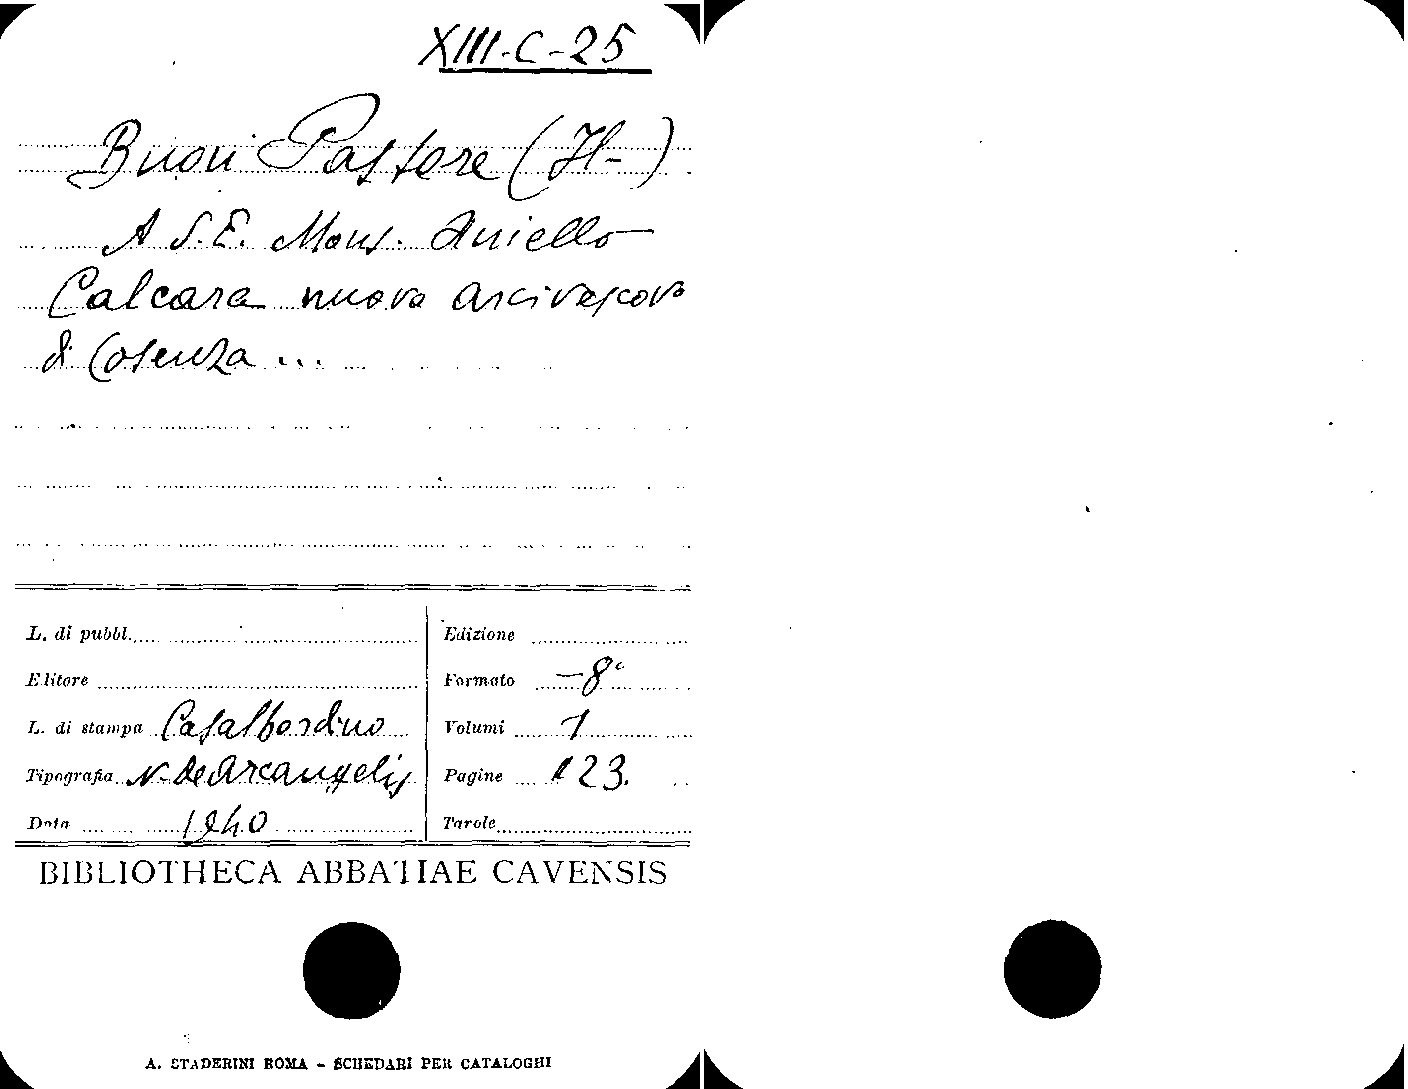 XIII-C-25
Buon Pastore (Il-)
A S.E. Mons. Aniello
Calcara nuovo arcivescovo
di Cosenza ...
L. di pubbl.
Edizione
Editore
Formato -8°
L. di stampa Casalbordino
Volumi 1
Tipografia N. De Arcangelis
Pagine 123.
Data 1940
Tavole
BIBLIOTHECA ABBATIAE CAVENSIS
A. STADERINI ROMA - SCHEDARI PER CATALOGHI